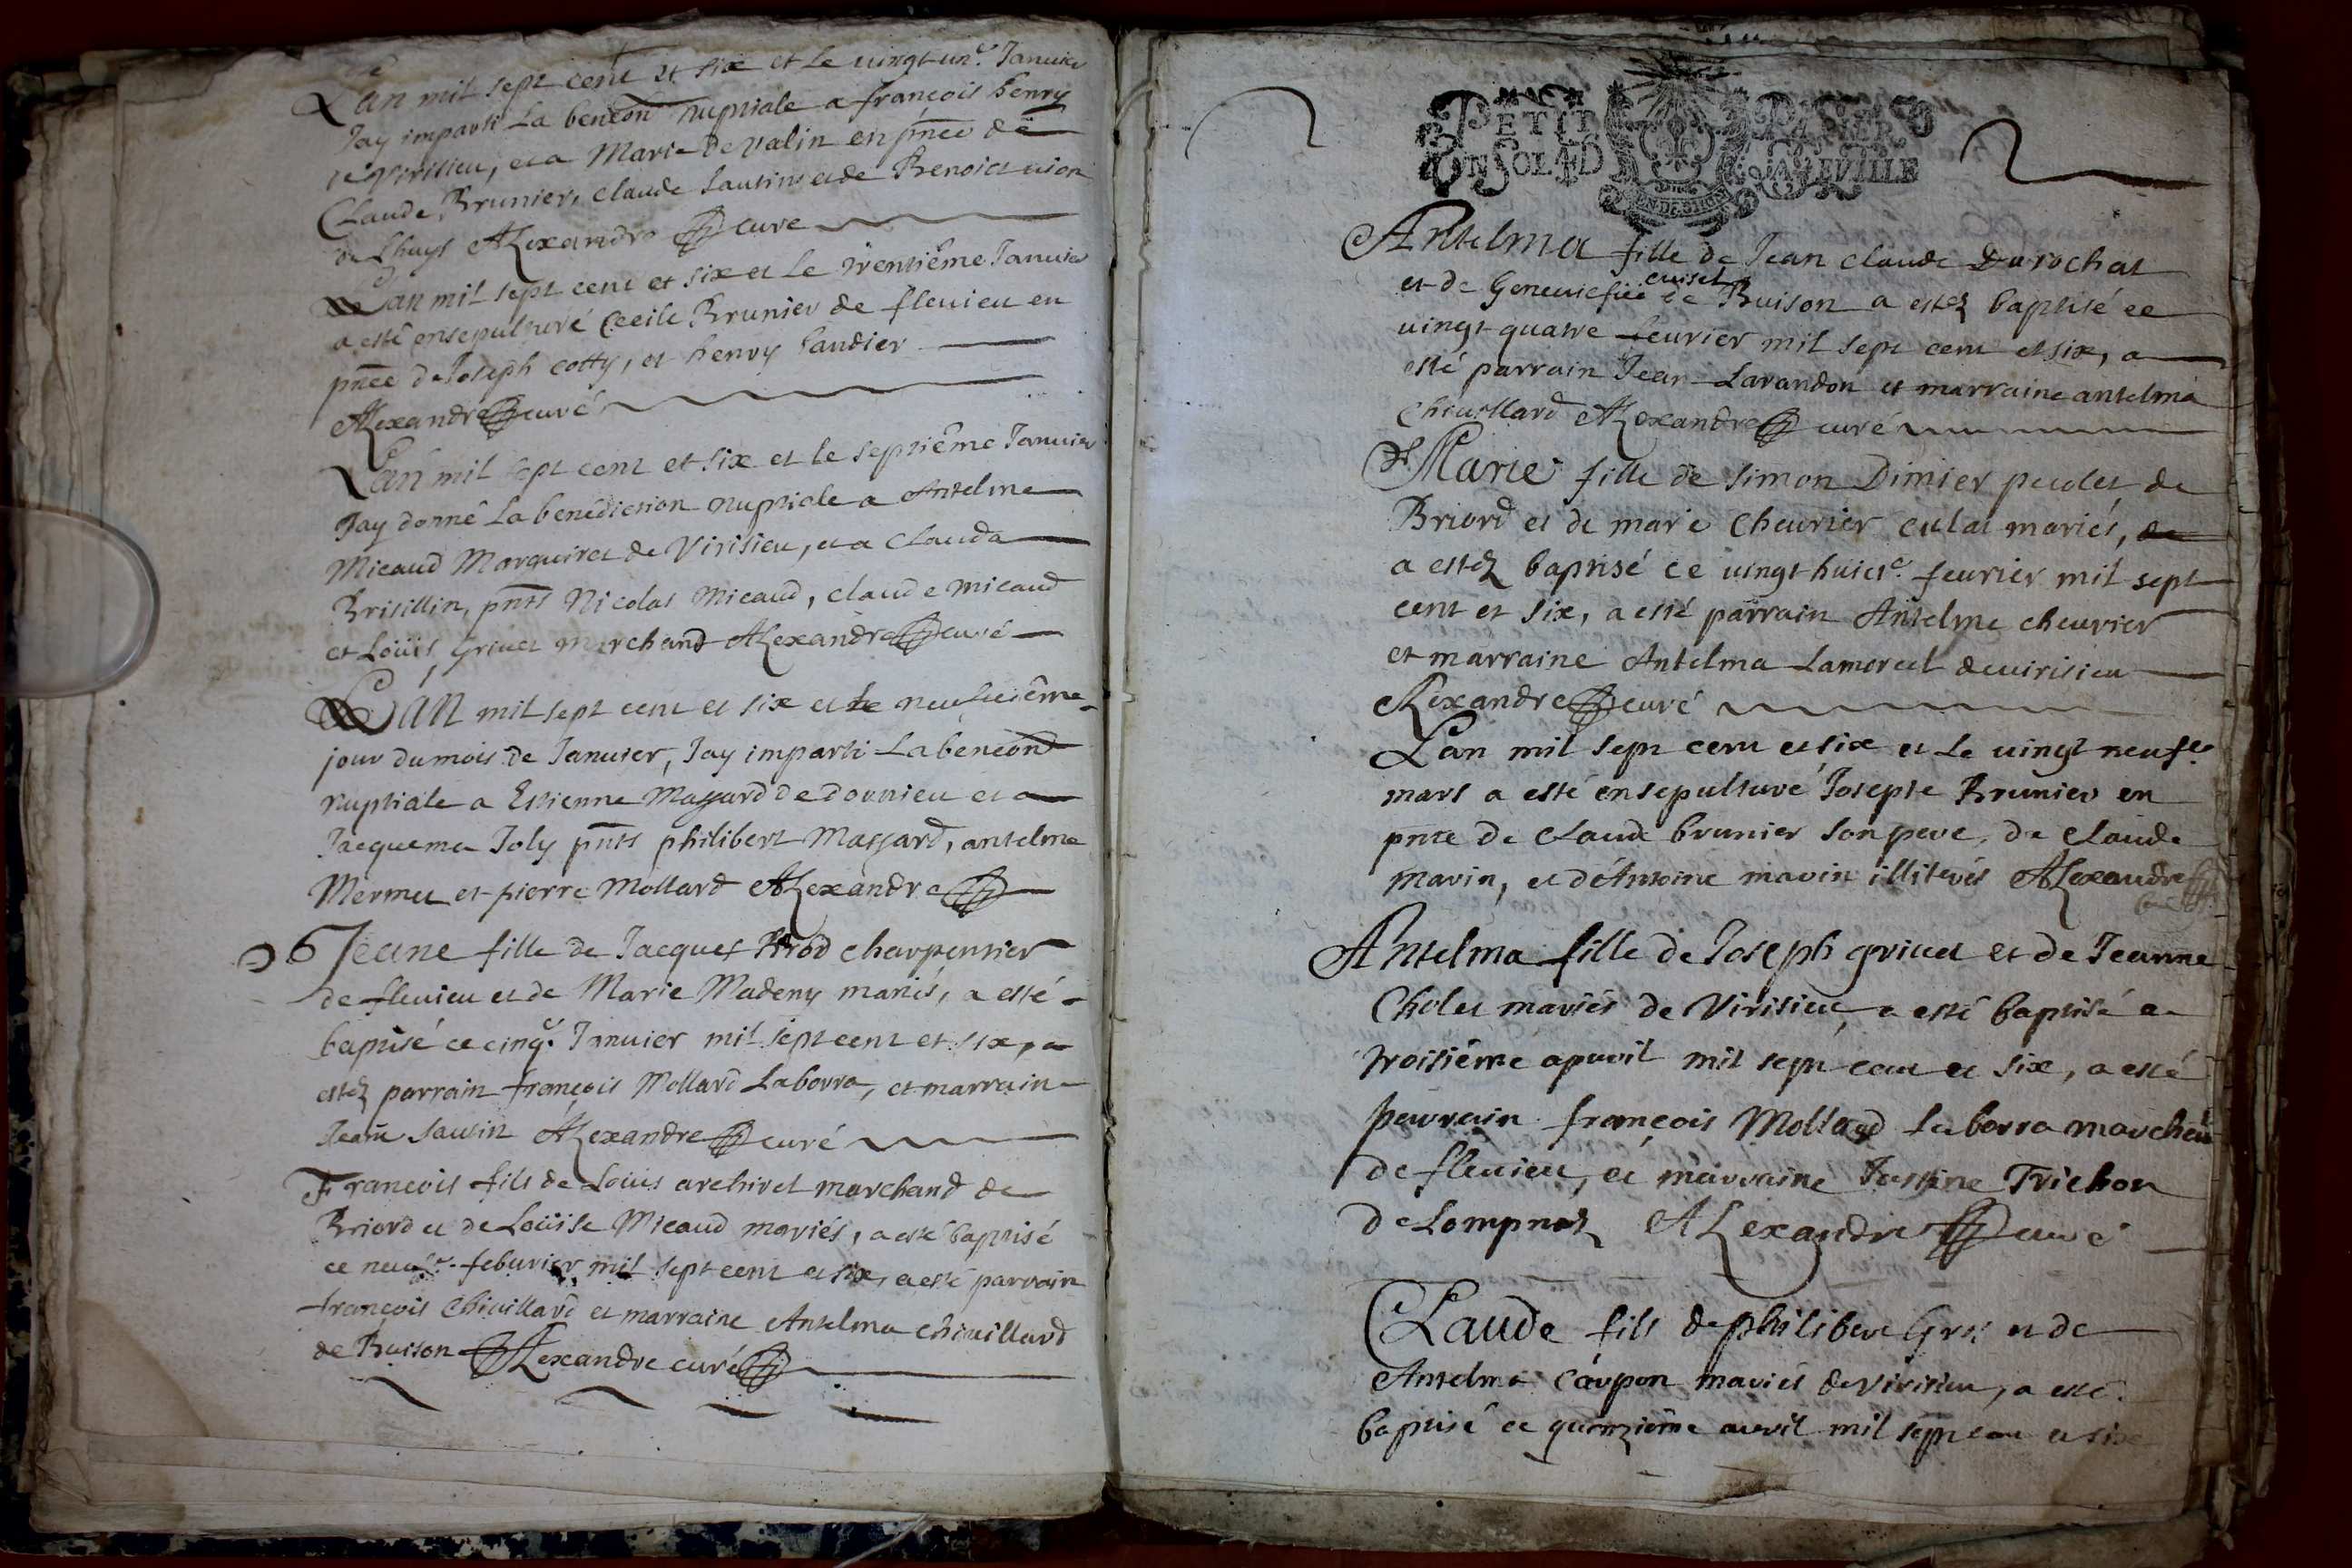 Lan mil sept cent et six et le vingt un.e Januier
Jay imparti La benéon nuptiale a françois henry
de Virisieu, et a Marie De valin en pnce de
Claude Brunier, Claude Sautin et de Benoict
de Lhuys Alexandre curé
Lan mil sept cent et six et le trentiême Januier
a esté ensepulturé Cecile Brunier de fleuieu en
pnce de Joseph cotty, et henry
Alexandre curé
Lan mil sept cent et six et le septiême Januier
Jay donné La benediction nuptiale a Antelme
Micaud Marquiret de Virisieu, et a Clauda
Brisillin, pnts Nicolas Micaud, claude micaud
et Loüis Griuet marchand Alexandre curé
Lan mil sept cent et six et le neufuiême
jour du mois de Januier, Jay imparti La benéon
nuptiale a Estienne Massard de dornieu et a
Jacquema Joly pnts philibert Massard, antelme
Mermet et pierre Mollard Alexandre
Jeane fille de Jacques charpentier
de fleuieu et de Marie Madeny mariés, a esté
baptisé ce cinq.e Januier mil sept cent et six, a
estez parrain françois Mollard Laborra, et marraine
Jeane Sautin Alexandre curé
Francois fils de Loüis archiret marchand de
Briord et de Loüise Micaud mariés, a esté baptisé
ce neuf.e feburier mil sept cent et six, a esté parrain
francois Chiuillard et marraine Antelma chiuillard
de Buison Alexandre curé
PETIT PAPIER
UN SOL 4 D LA FEVILLE
Antelma fille de Jean claude Durochat
cuiset
et de Geneuiefue de Buison a estez baptisé ce
vingt quatre feurier mil sept cent et six, a
esté parrain Jean Larandon et marraine antelma
Chiuillard Alexandre curé
Marie fille de simon Dimier peudet de
Briord et de marie Cheurier culat mariés, de
a estez baptisé ce vingt huict.e feurier mil sept
cent et six, a esté parrain Antelme cheurier
et marraine Antelma Lamoreul de uirisieu
Alexandre curé
Lan mil sept cent et six et Le vingt neuf.e
mars a esté ensepulturé Josepte Brunier en
pnce de Claude brunier son pere, de claude
marin, et d'Antoine marin illiterés Alexandre
curé
Antelma fille de Joseph griuet et de Jeanne
Cholet mariés de Virisieu, a esté baptisé ce
troisiême apuril mil sept cent et six, a esté
parrain françois Mollard Laborra marchan
de fleuieu, et marraine Justine Trichon
de Lompnaz Alexandre curé
Claude fils de philibert Gros et de
Antelma Carpon mariés de Virisieu, a esté
baptisé ce quinziême auril mil sept cent et six